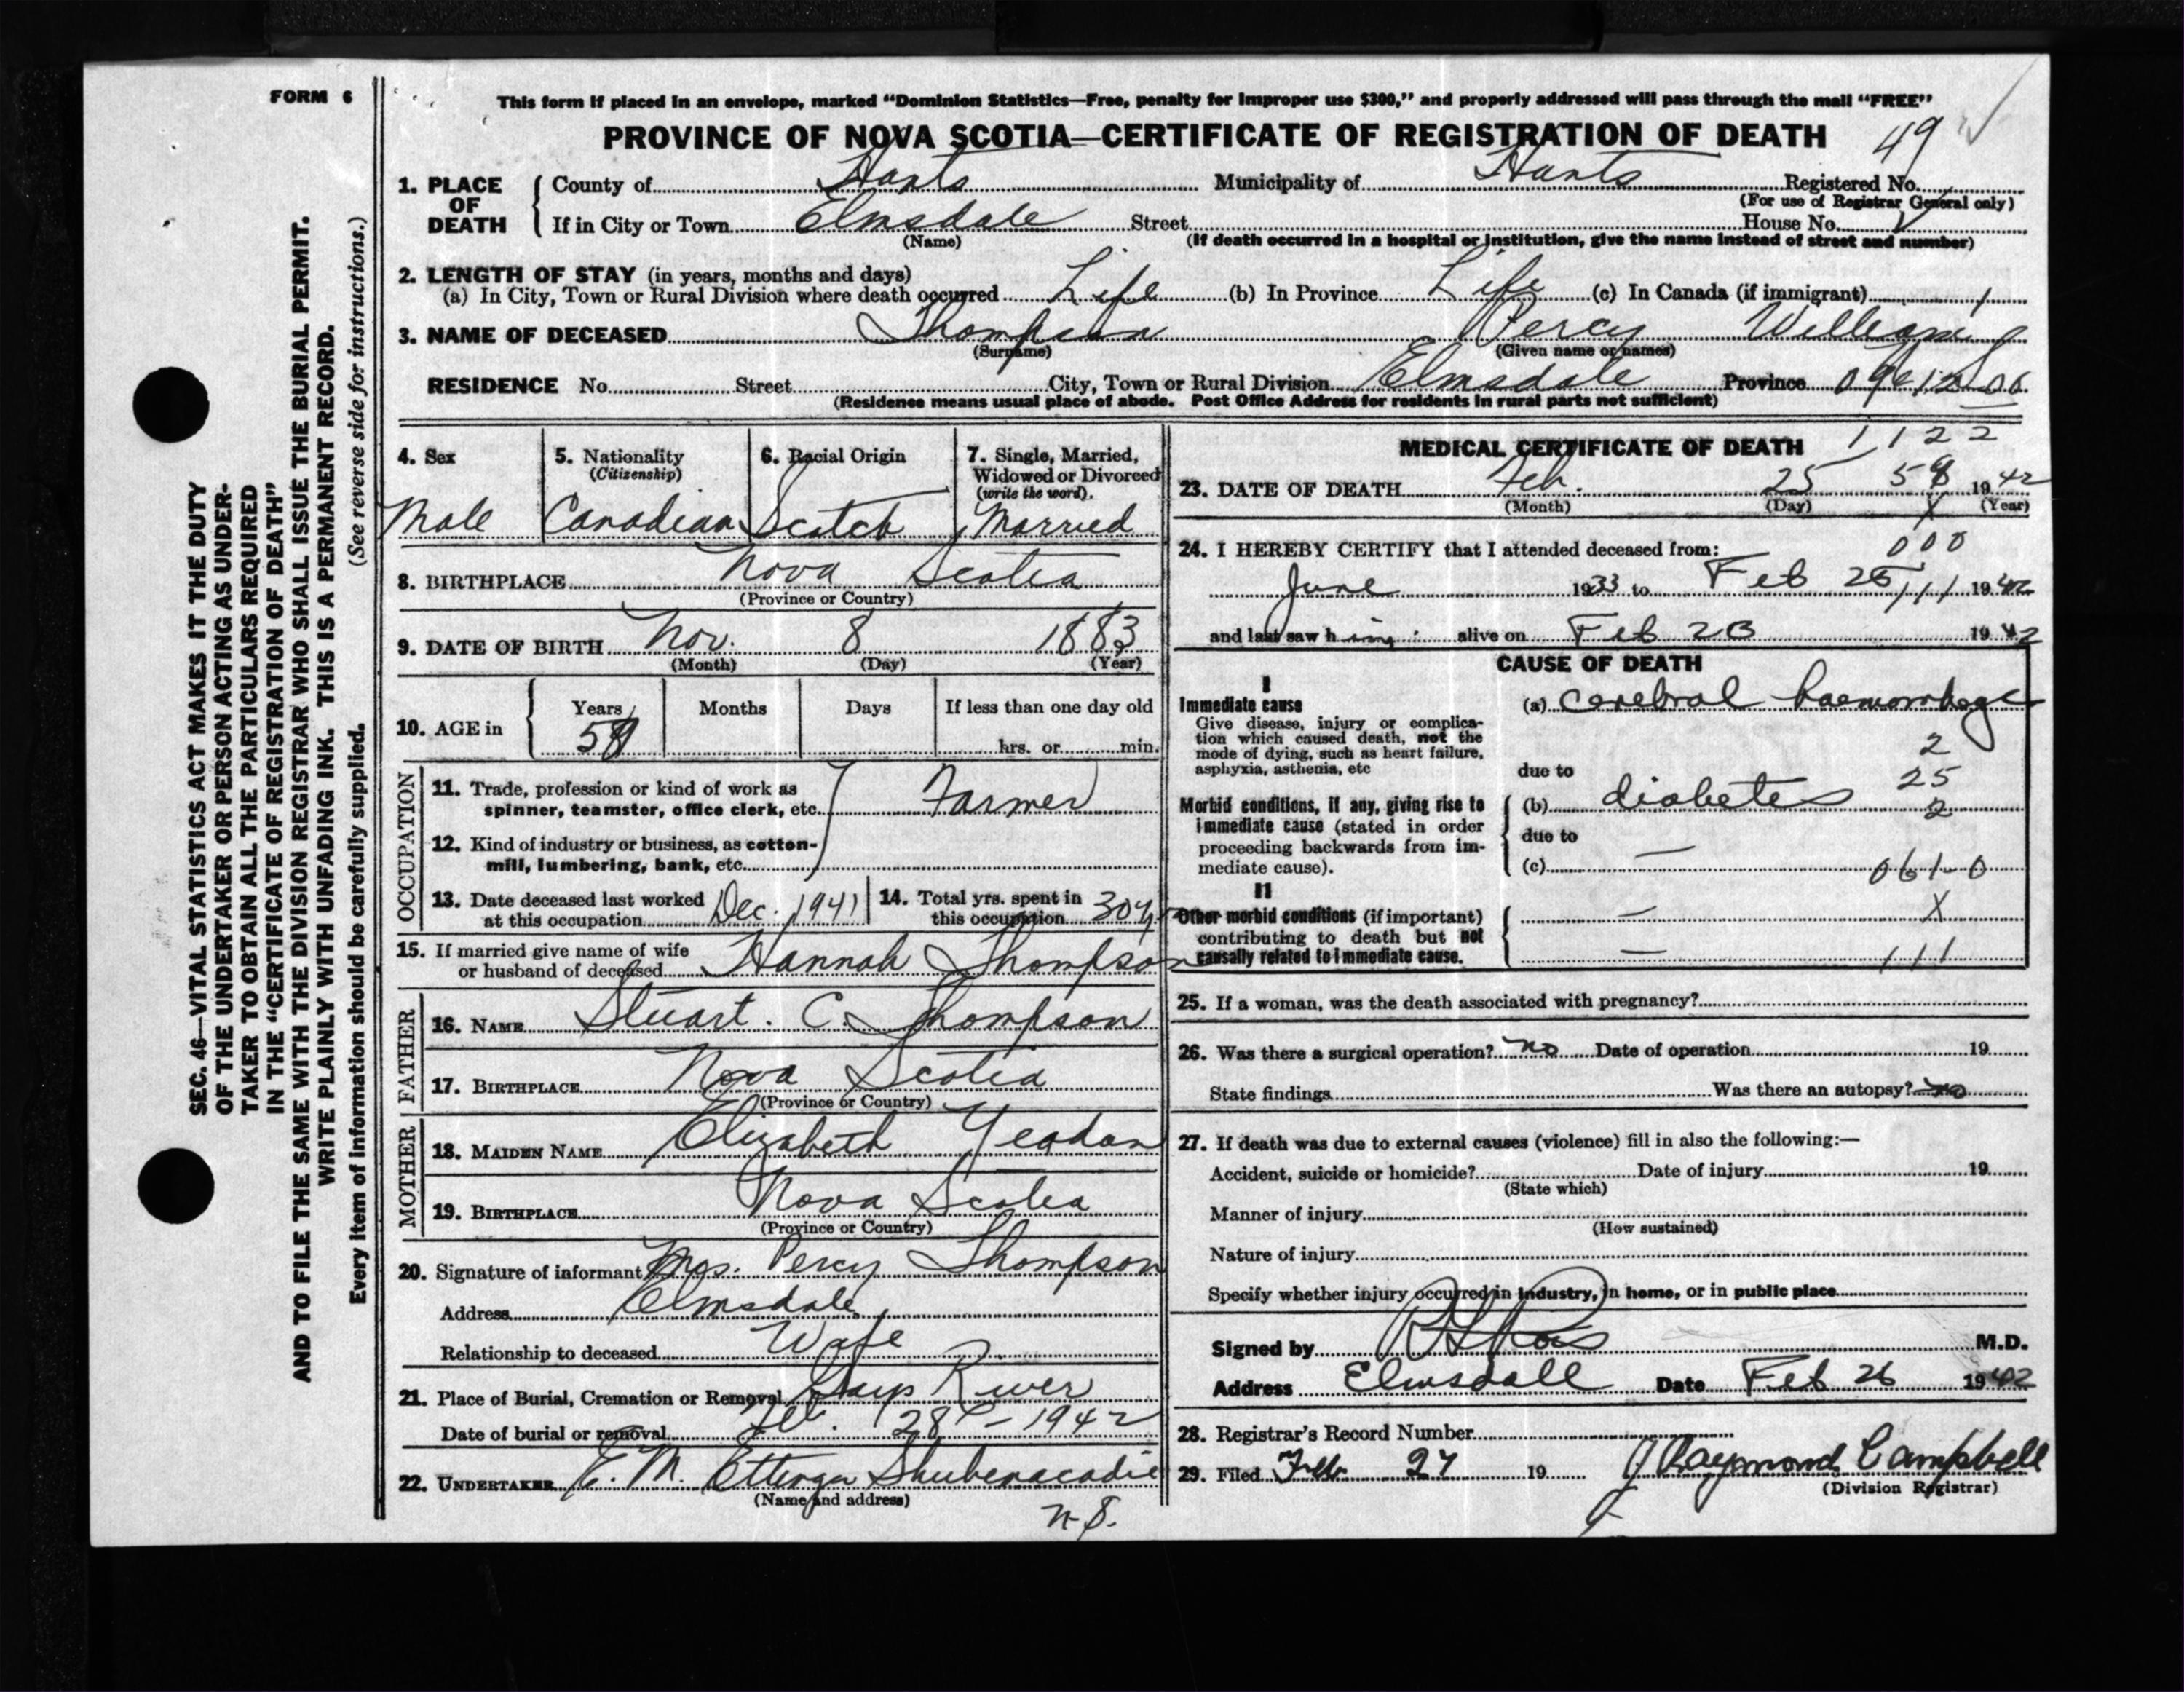 FORM 6
This form if placed in an envelope, marked “Dominion Statistics—Free, penalty for improper use $300,” and properly addressed will pass through the mail “FREE”
PROVINCE OF NOVA SCOTIA—CERTIFICATE OF REGISTRATION OF DEATH
49
1. PLACE OF DEATH { County of Hants Municipality of Hants Registered No.
(For use of Registrar General only)
If in City or Town Elmsdale Street House No.
(Name) (If death occurred in a hospital or institution, give the name instead of street and number)
2. LENGTH OF STAY (in years, months and days)
(a) In City, Town or Rural Division where death occurred Life (b) In Province Life (c) In Canada (if immigrant)
3. NAME OF DECEASED Thompson Percy William
(Surname) (Given name or names)
RESIDENCE No. Street City, Town or Rural Division Elmsdale Province
(Residence means usual place of abode. Post Office Address for residents in rural parts not sufficient)
4. Sex 5. Nationality (Citizenship) 6. Racial Origin 7. Single, Married, Widowed or Divorced (write the word).
Male Canadian Scotch Married
8. BIRTHPLACE Nova Scotia
(Province or Country)
9. DATE OF BIRTH Nov. 8 1883
(Month) (Day) (Year)
10. AGE in { Years Months Days If less than one day old
hrs. or min.
OCCUPATION
11. Trade, profession or kind of work as spinner, teamster, office clerk, etc. Farmer
12. Kind of industry or business, as cotton-mill, lumbering, bank, etc.
13. Date deceased last worked at this occupation Dec. 1941 14. Total yrs. spent in this occupation 30
15. If married give name of wife or husband of deceased Hannah Thompson
FATHER
16. NAME Stuart. C. Thompson
17. BIRTHPLACE Nova Scotia
(Province or Country)
MOTHER
18. MAIDEN NAME Elizabeth Yeadon
19. BIRTHPLACE Nova Scotia
(Province or Country)
20. Signature of informant Mrs. Percy Thompson
Address Elmsdale,
Relationship to deceased Wife
21. Place of Burial, Cremation or Removal Gays River
Date of burial or removal Feb. 28 – 1942
22. UNDERTAKER E. M. Ettinger Shubenacadie
(Name and address)
N.S.
MEDICAL CERTIFICATE OF DEATH 1 1 2 2
23. DATE OF DEATH Feb. 25 1942
(Month) (Day) (Year)
24. I HEREBY CERTIFY that I attended deceased from: 000
June 1933 to Feb 25 111 1942
and last saw him alive on Feb 1942
CAUSE OF DEATH
I
Immediate cause (a) cerebral haemorrhage
Give disease, injury or complication which caused death, not the
mode of dying, such as heart failure,
asphyxia, asthenia, etc
due to
2
25
2
Morbid conditions, if any, giving rise to (b) diabetes
immediate cause (stated in order due to
proceeding backwards from immediate cause). (c) — 061-0
II
Other morbid conditions (if important) — X
contributing to death but not
causally related to immediate cause. — 111
25. If a woman, was the death associated with pregnancy?
26. Was there a surgical operation? no Date of operation 19
State findings Was there an autopsy? no
27. If death was due to external causes (violence) fill in also the following:—
Accident, suicide or homicide? Date of injury 19
(State which)
Manner of injury
(How sustained)
Nature of injury
Specify whether injury occurred in industry, in home, or in public place
Signed by M.D.
Address Elmsdall Date Feb 26 1942
28. Registrar’s Record Number
29. Filed Feb 27 19 J Raymond Campbell
(Division Registrar)
SEC. 46—VITAL STATISTICS ACT MAKES IT THE DUTY
OF THE UNDERTAKER OR PERSON ACTING AS UNDER-
TAKER TO OBTAIN ALL THE PARTICULARS REQUIRED
IN THE “CERTIFICATE OF REGISTRATION OF DEATH”
AND TO FILE THE SAME WITH THE DIVISION REGISTRAR WHO SHALL ISSUE THE BURIAL PERMIT.
WRITE PLAINLY WITH UNFADING INK. THIS IS A PERMANENT RECORD.
Every item of information should be carefully supplied. (See reverse side for instructions.)